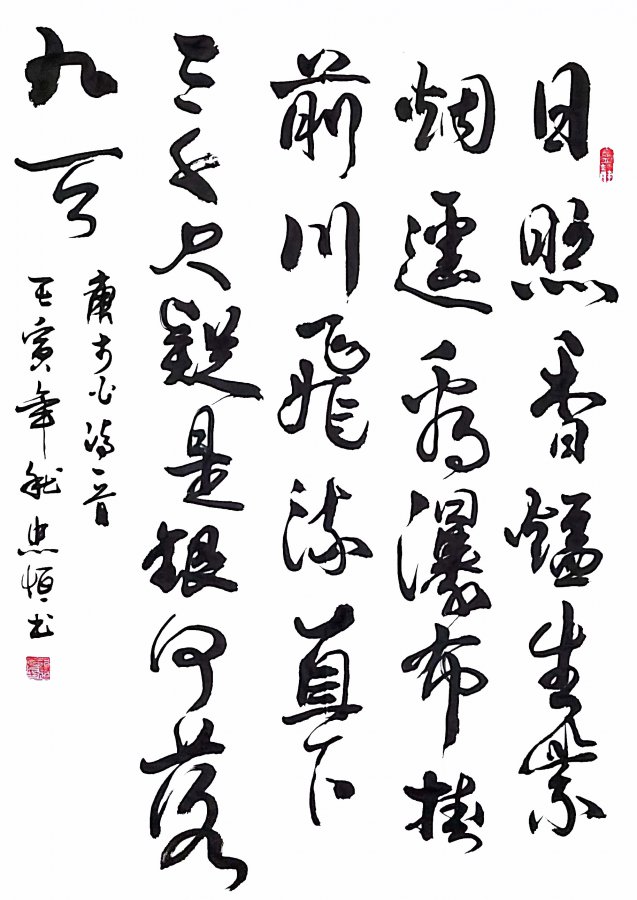 日照香爐生紫
烟遥看瀑布挂
前川飛流直下
三千尺疑是銀河落
九天
唐李白诗一首
壬寅年秋忠恒书